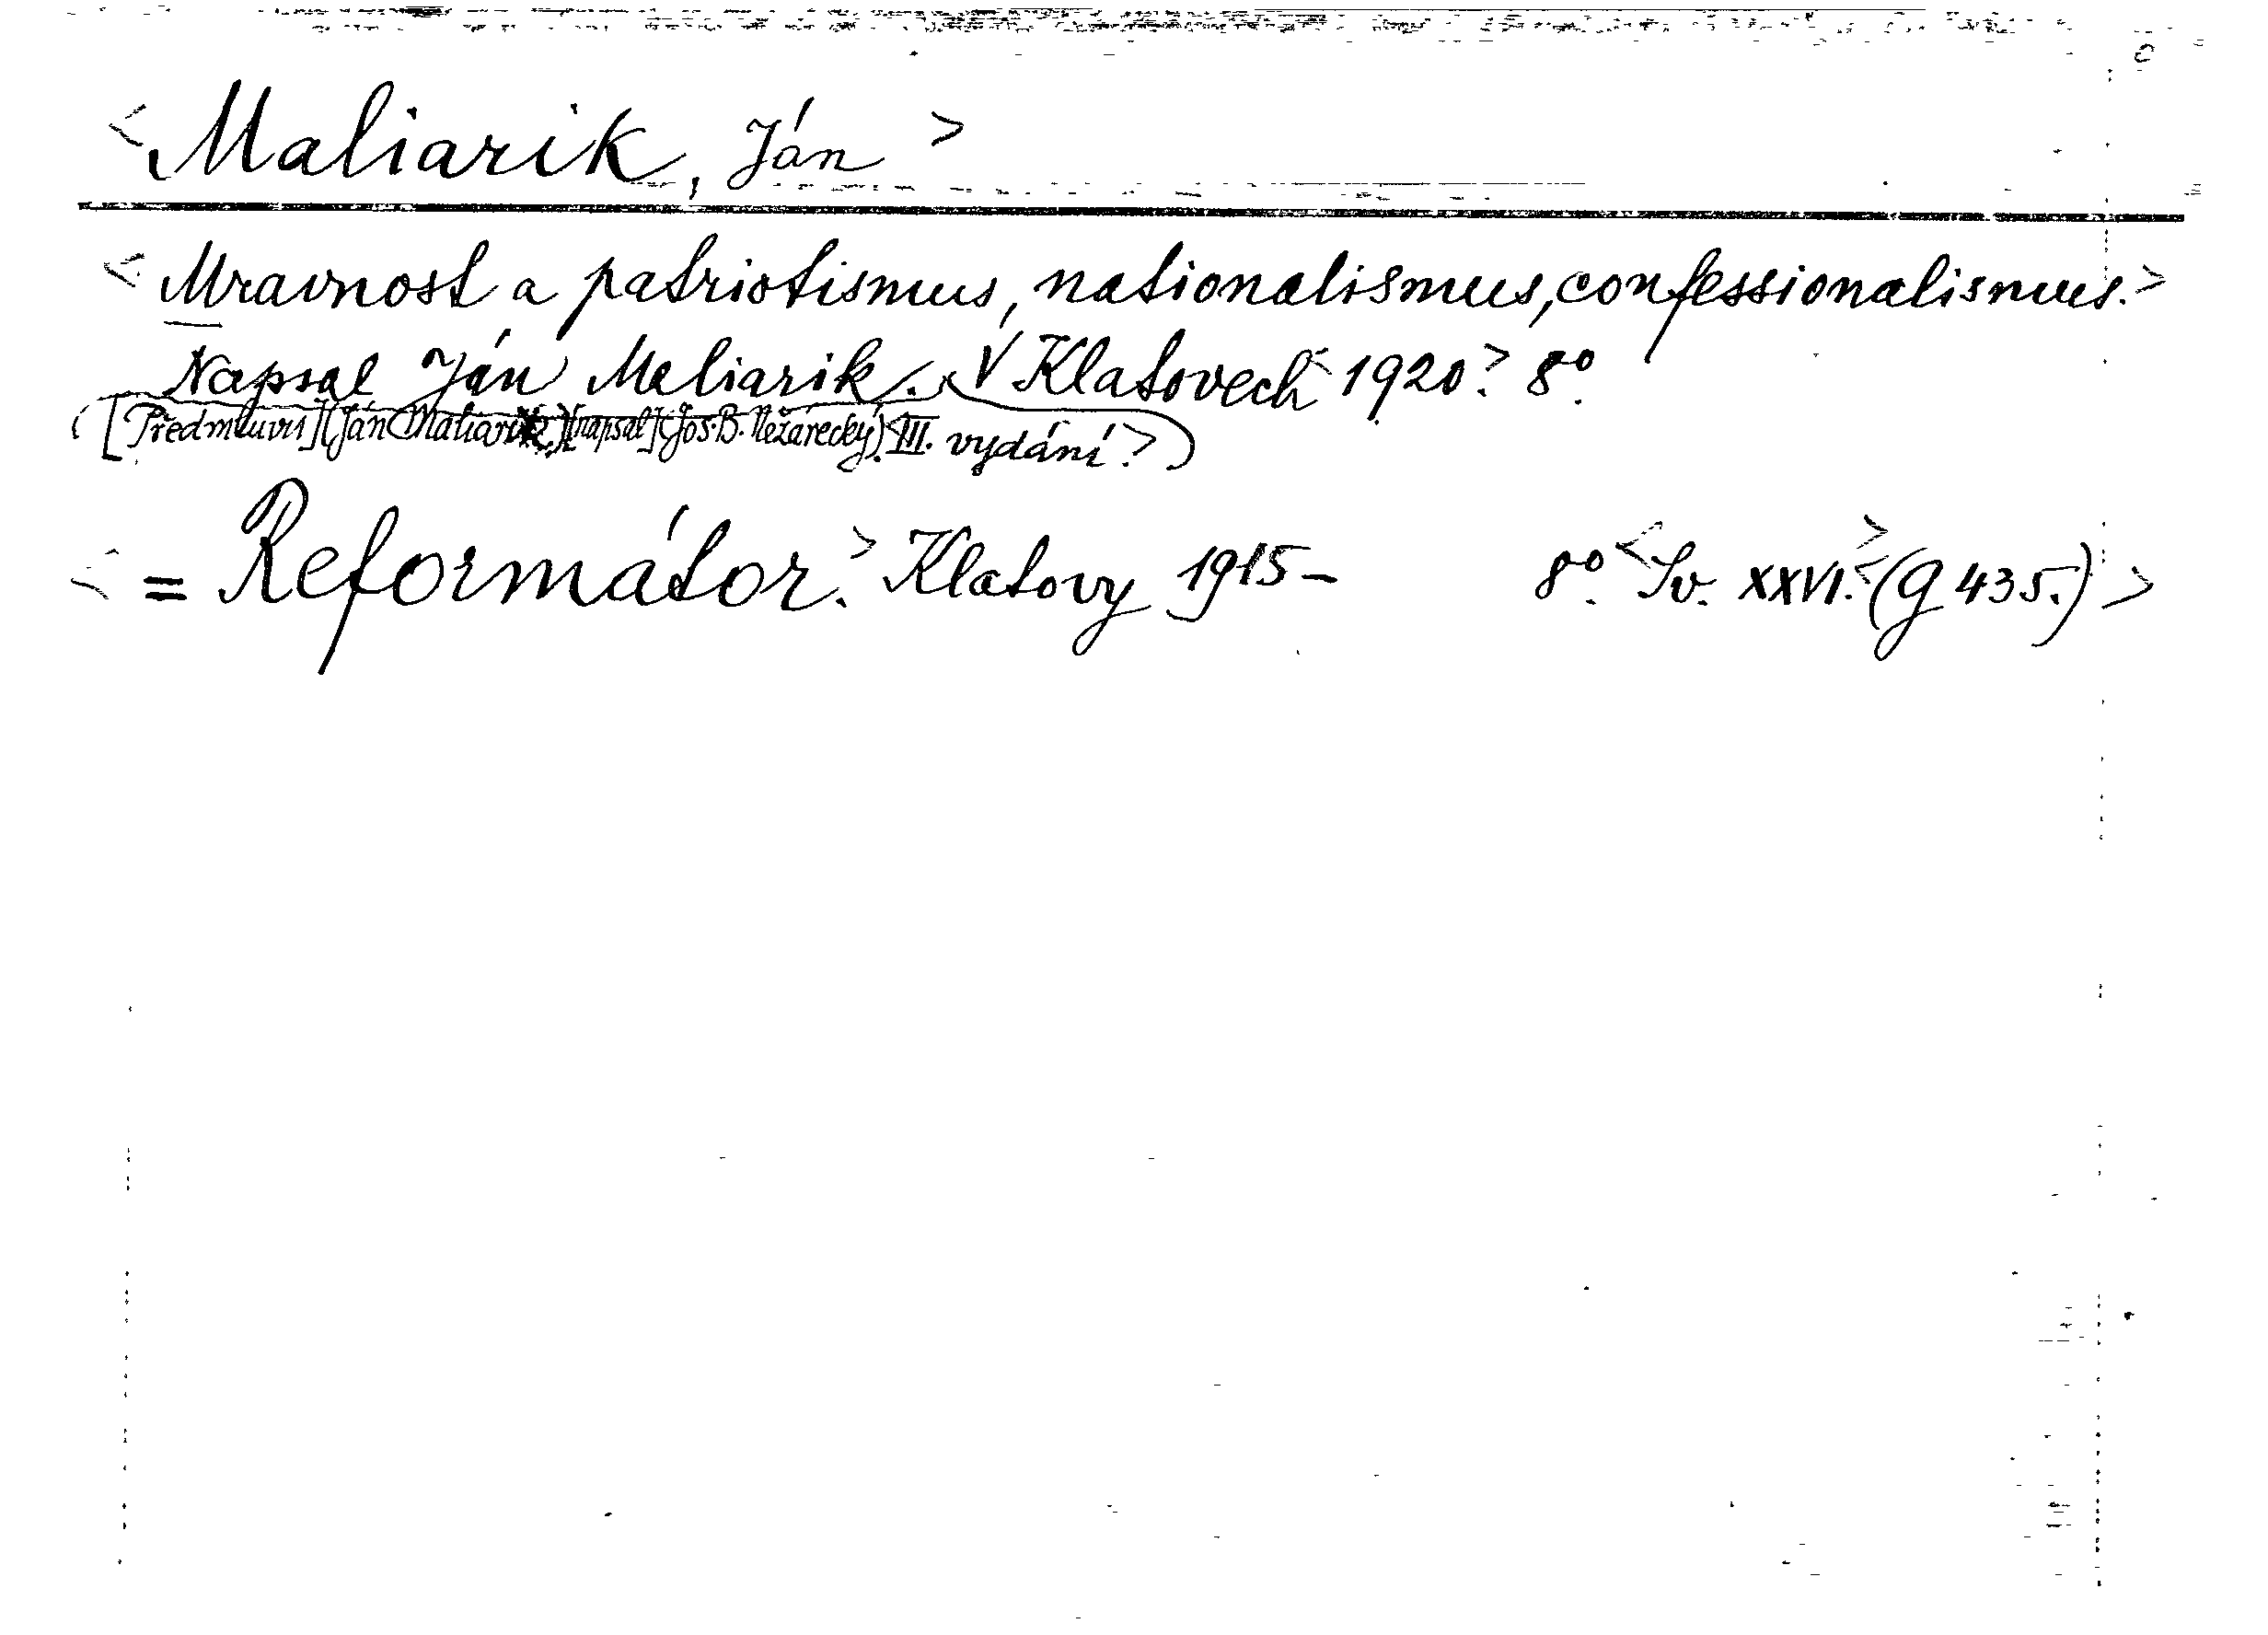 <Maliarik, Ján>
<Mravnost a patriotismus, nationalismus, confessionalismus.>
Napsal Ján Maliarik. V Klatovech 1920.> 8º.
([Předmluvu] (Ján Maliarik) [napsal] (Jos. B. Nežárecký). III. vydání.>)
<= Reformátor.> Klatovy 1915- 8º. <Sv. XXVI.> <(g 435.)>